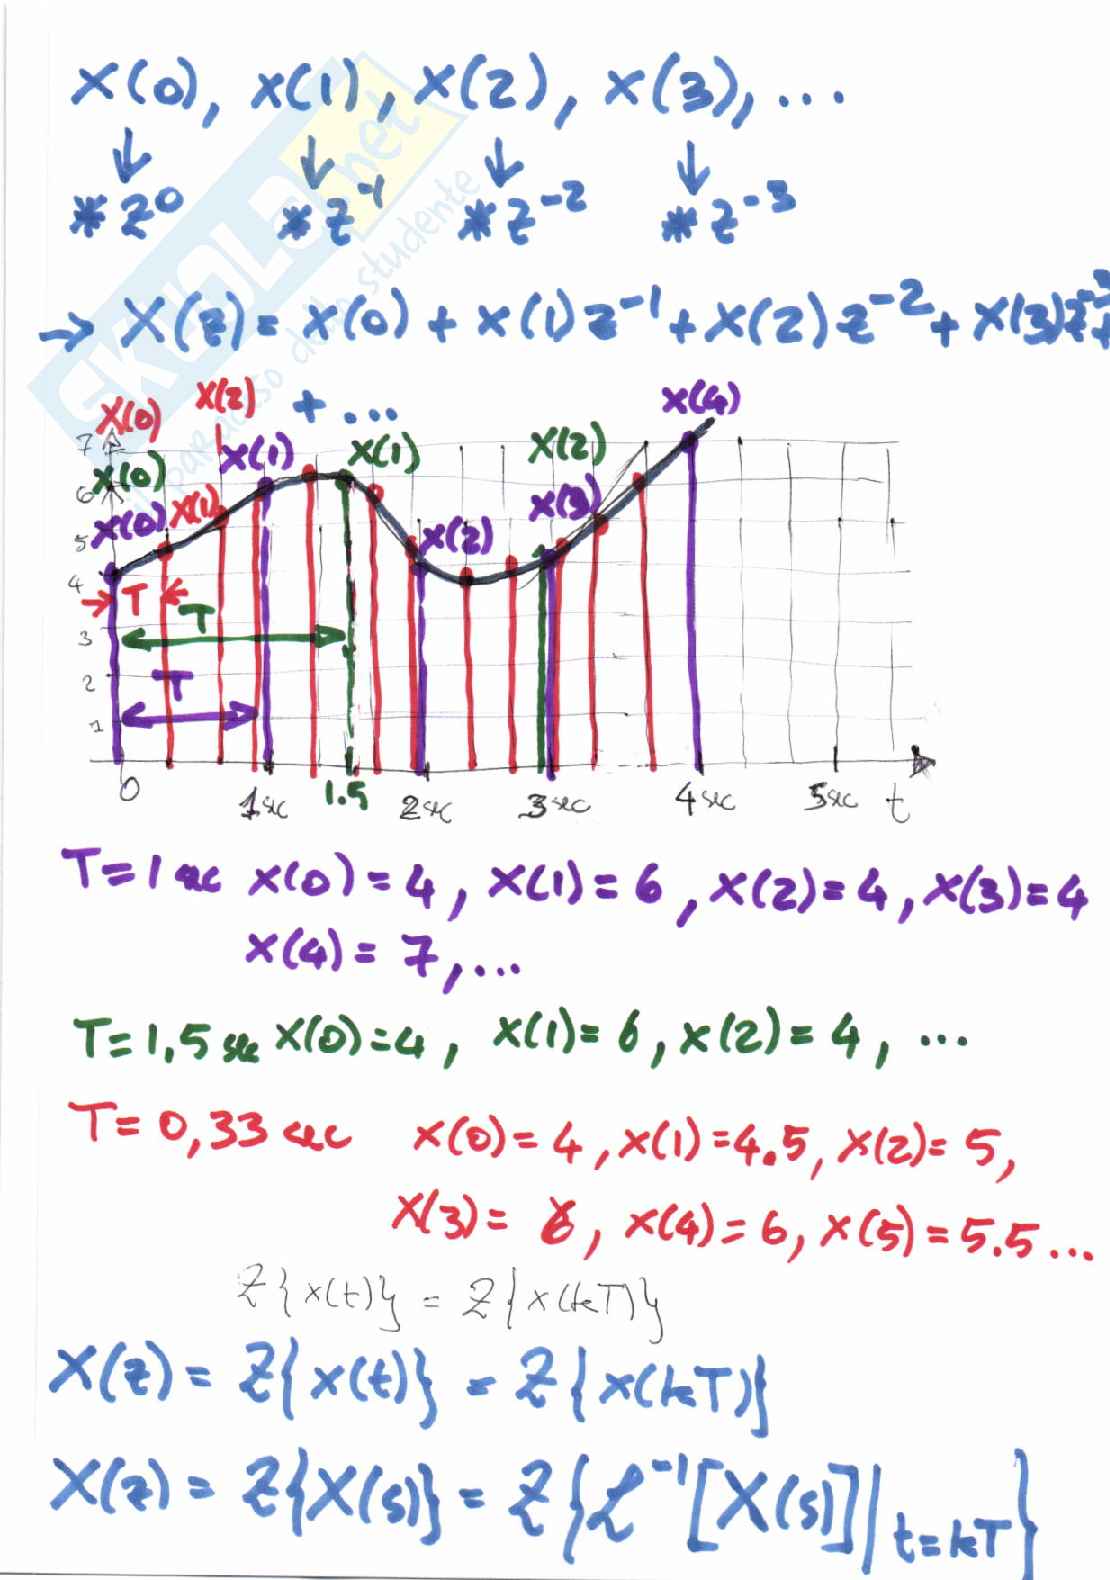 x(0), x(1), x(2), x(3), ...
↓ ↓ ↓ ↓
* z⁰ * z⁻¹ * z⁻² * z⁻³
→ X(z) = x(0) + x(1) z⁻¹ + x(2) z⁻² + x(3) z⁻³ +
+ ...
SKUOLA.net
il paradiso dello studente
x(0) x(2) x(4)
x(0) x(1) x(1) x(2)
x(0) x(1) x(2) x(3)
7
6
5
4
3
2
1
T
T
T
0 1sec 1.5 2sec 3sec 4sec 5sec t
T=1 sec x(0)=4, x(1)=6, x(2)=4, x(3)=4
x(4)=7, ...
T=1,5 sec x(0)=4, x(1)=6, x(2)=4, ...
T=0,33 sec x(0)=4, x(1)=4.5, x(2)=5,
x(3)=6, x(4)=6, x(5)=5.5...
Z{x(t)} = Z{x(kT)}
X(z) = Z{x(t)} = Z{x(kT)}
X(z) = Z{X(s)} = Z{ℒ⁻¹[X(s)]|t=kT}